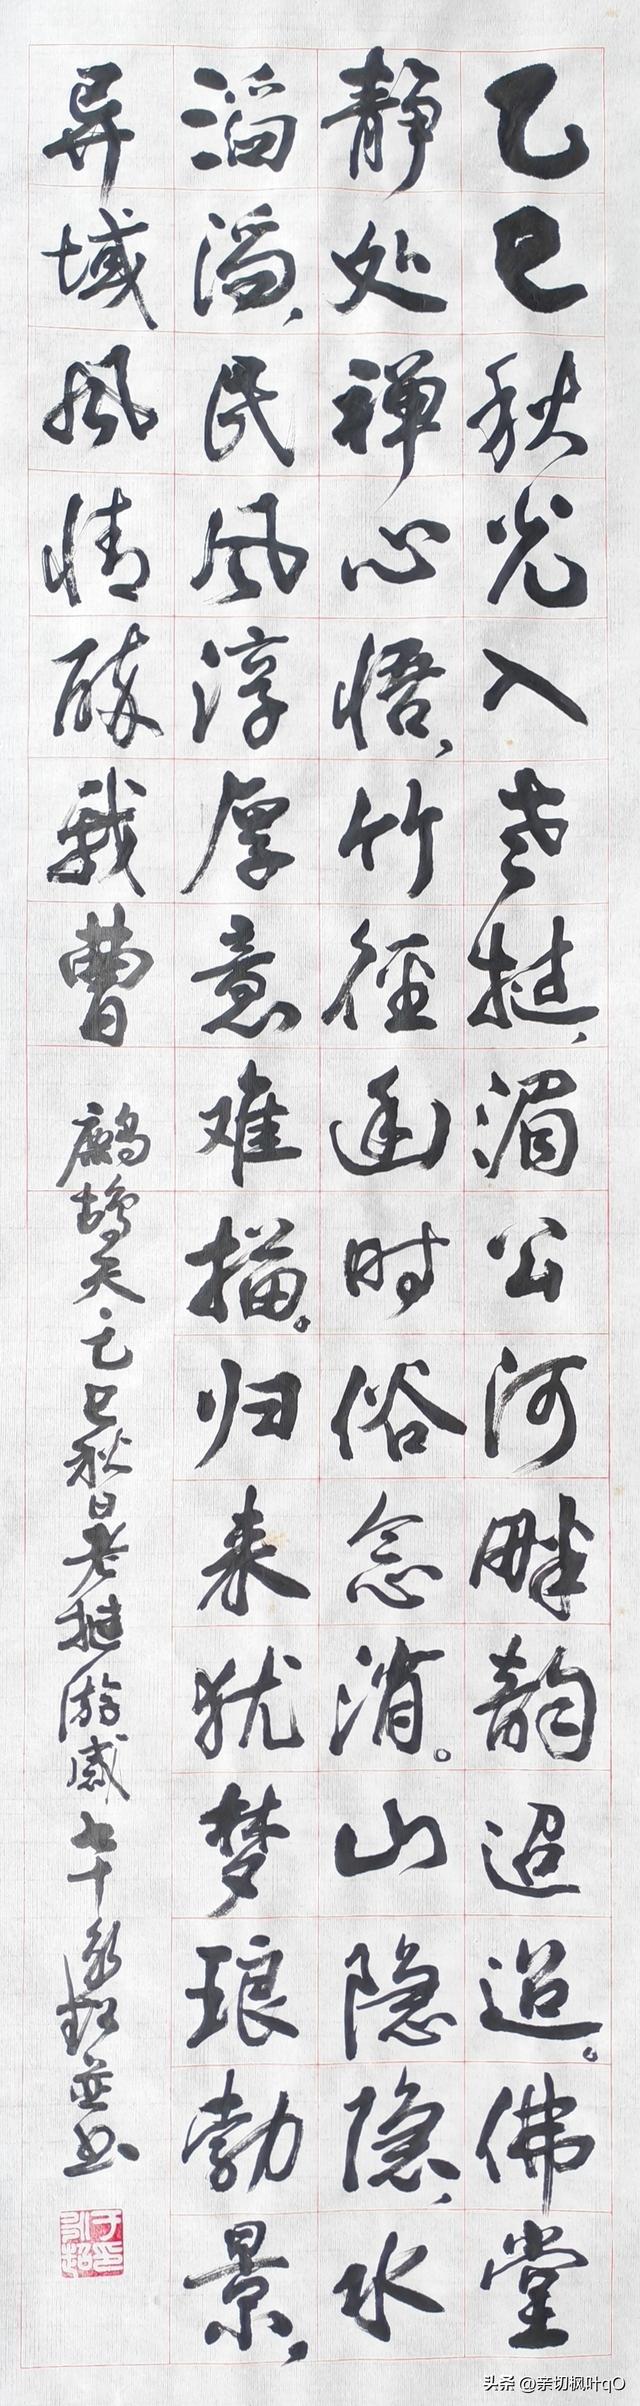 乙巳秋光入老挝，湄公河畔韵迢迢。佛堂
静处禅心悟，竹径幽时俗念消。山隐隐，水
滔滔，民风淳厚意难描。归来犹梦琅勃景，
异域风情醉我曹
鹧鸪天·乙巳秋日老挝游感 七十 超並书
头条 @亲切枫叶qO